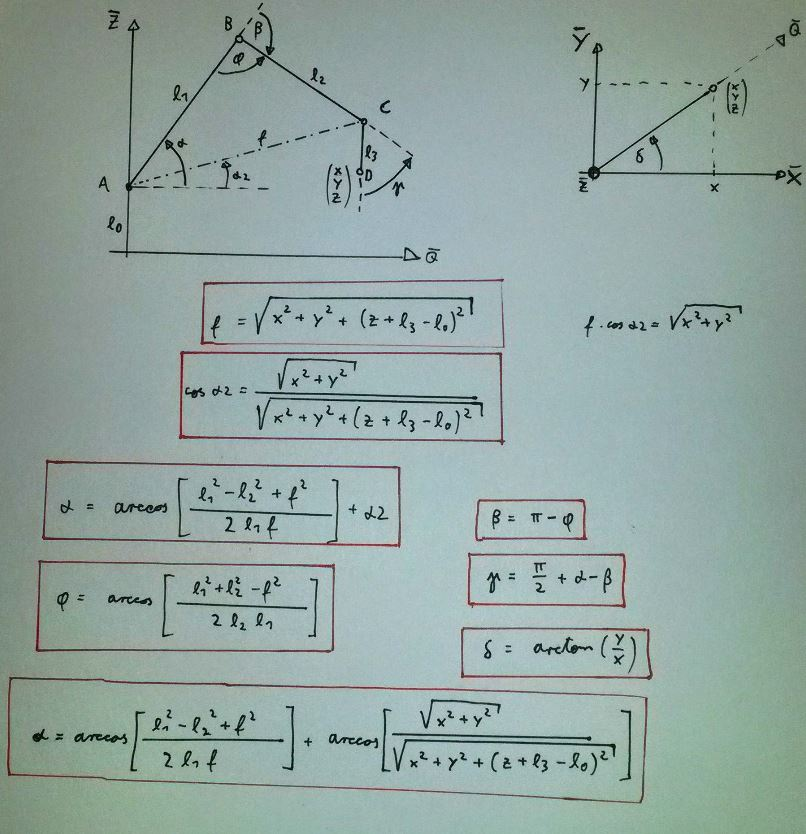 Z̄
B β
φ
l₁
l₂
C
α
f
l₃
A
α2
(x y z)
D
γ
l₀
Q̄
Ȳ
Q̄
y
(x y z)
δ
Z̄
x
X̄
f = √(x² + y² + (z + l₃ - l₀)²)
f · cos α2 = √(x² + y²)
cos α2 = √(x² + y²) / √(x² + y² + (z + l₃ - l₀)²)
α = arccos [(l₁² - l₂² + f²) / (2 l₁ f)] + α2
β = π - φ
φ = arccos [(l₁² + l₂² - f²) / (2 l₂ l₁)]
γ = π/2 + α - β
δ = arctan (y/x)
α = arccos [(l₁² - l₂² + f²) / (2 l₁ f)] + arccos [√(x² + y²) / √(x² + y² + (z + l₃ - l₀)²)]